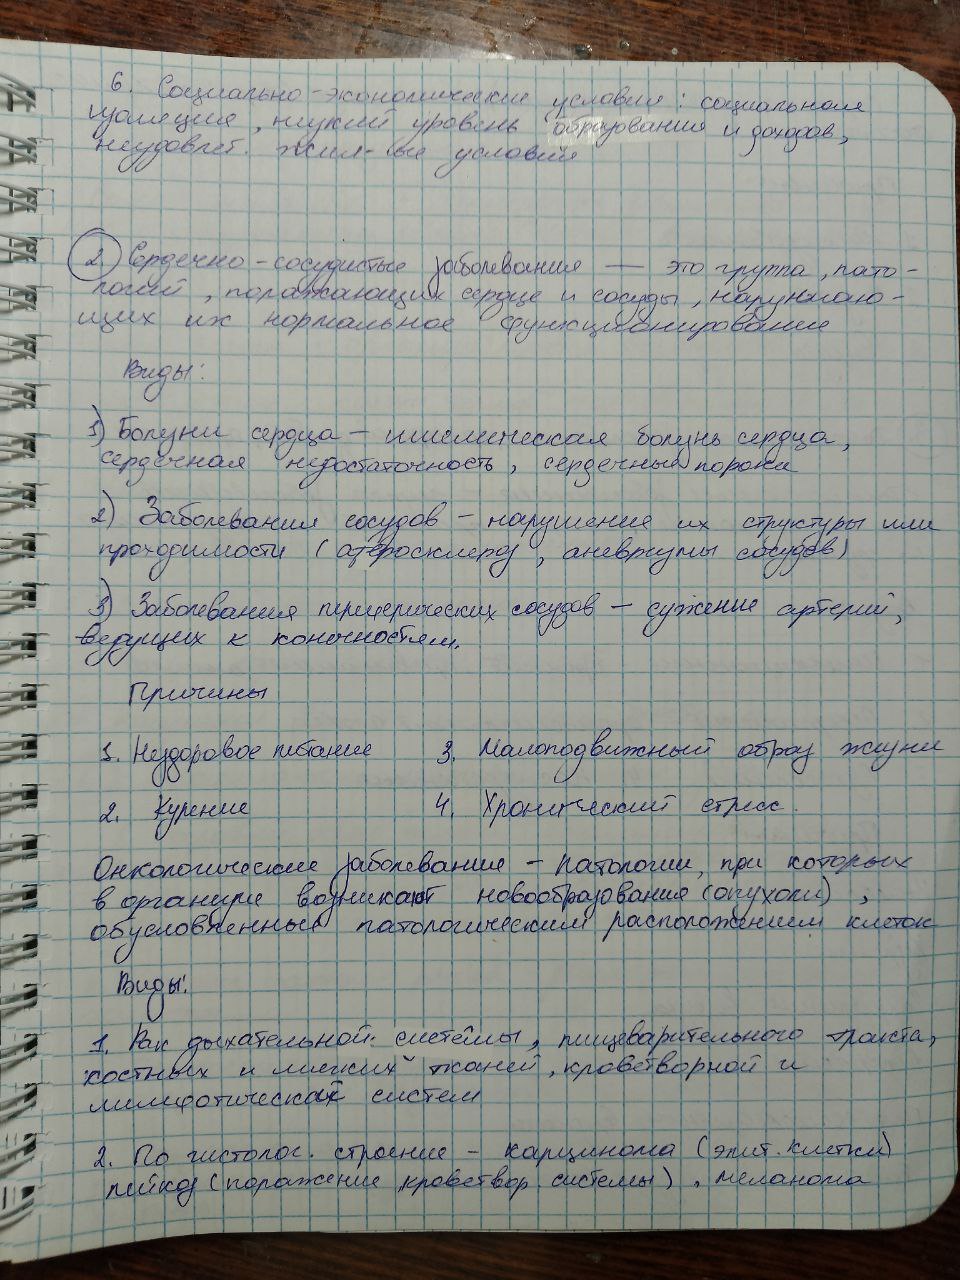 6. Социально-экономические условия: социальная
изоляция, низкий уровень образования и доходов,
неудовлет. жил-ые условия
2 Сердечно-сосудистые заболевания — это группа, пато-
логий, поражающих сердце и сосуды, нарушаю-
щих их нормальное функционирование
Виды:
1) Болезни сердца – ишемическая болезнь сердца,
сердечная недостаточность, сердечные пороки
2) Заболевания сосудов – нарушение их структуры или
проходимости (атеросклероз, аневризмы сосудов)
3) Заболевания периферических сосудов – сужение артерий,
ведущих к конечностям.
Причины
1. Нездоровое питание 3. Малоподвижный образ жизни
2. Курение 4. Хронический стресс.
Онкологические заболевание – патологии, при которых
в организме возникают новообразования (опухоли),
обусловленные патологическим расположением клеток
Виды:
1. Рак дыхательной системы, пищеварительного тракта,
костных и мягких тканей, кроветворной и
лимфотической систем
2. По гистолог. строение – карцинома (эпит. клетки)
лейкоз (поражение кроветвор. системы), меланома